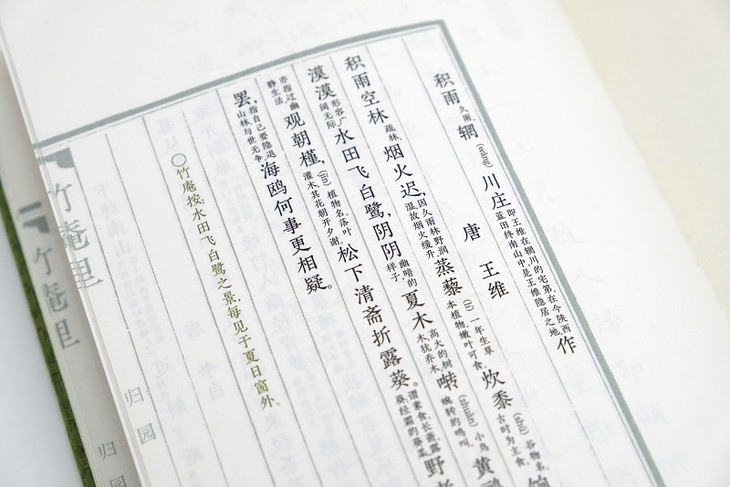 积雨久雨。辋(wǎng)川庄即王维在辋川的宅第,在今陕西蓝田终南山中,是王维隐居之地。作
唐 王维
积雨空林疏林。烟火迟,因久雨林野润湿,故烟火缓升。蒸藜(lí)一年生草本植物,嫩叶可食。炊黍(shǔ)谷物名,古时为主食。饷
漠漠形容广阔无际。水田飞白鹭,阴阴幽暗的样子。夏木高大的树木,犹乔木。啭(zhuàn)小鸟婉转的鸣叫。黄鹂
亦指过幽静生活。观朝槿,(jǐn)植物名,落叶灌木,其花朝开夕谢。松下清斋折露葵。谓素食,长斋。露葵:经霜的葵菜。野老
罢,指自己要隐退山林,与世无争。海鸥何事更相疑。
○竹庵按:水田飞白鹭之景,每见于夏日窗外。
竹庵里
归园
竹庵里
归园